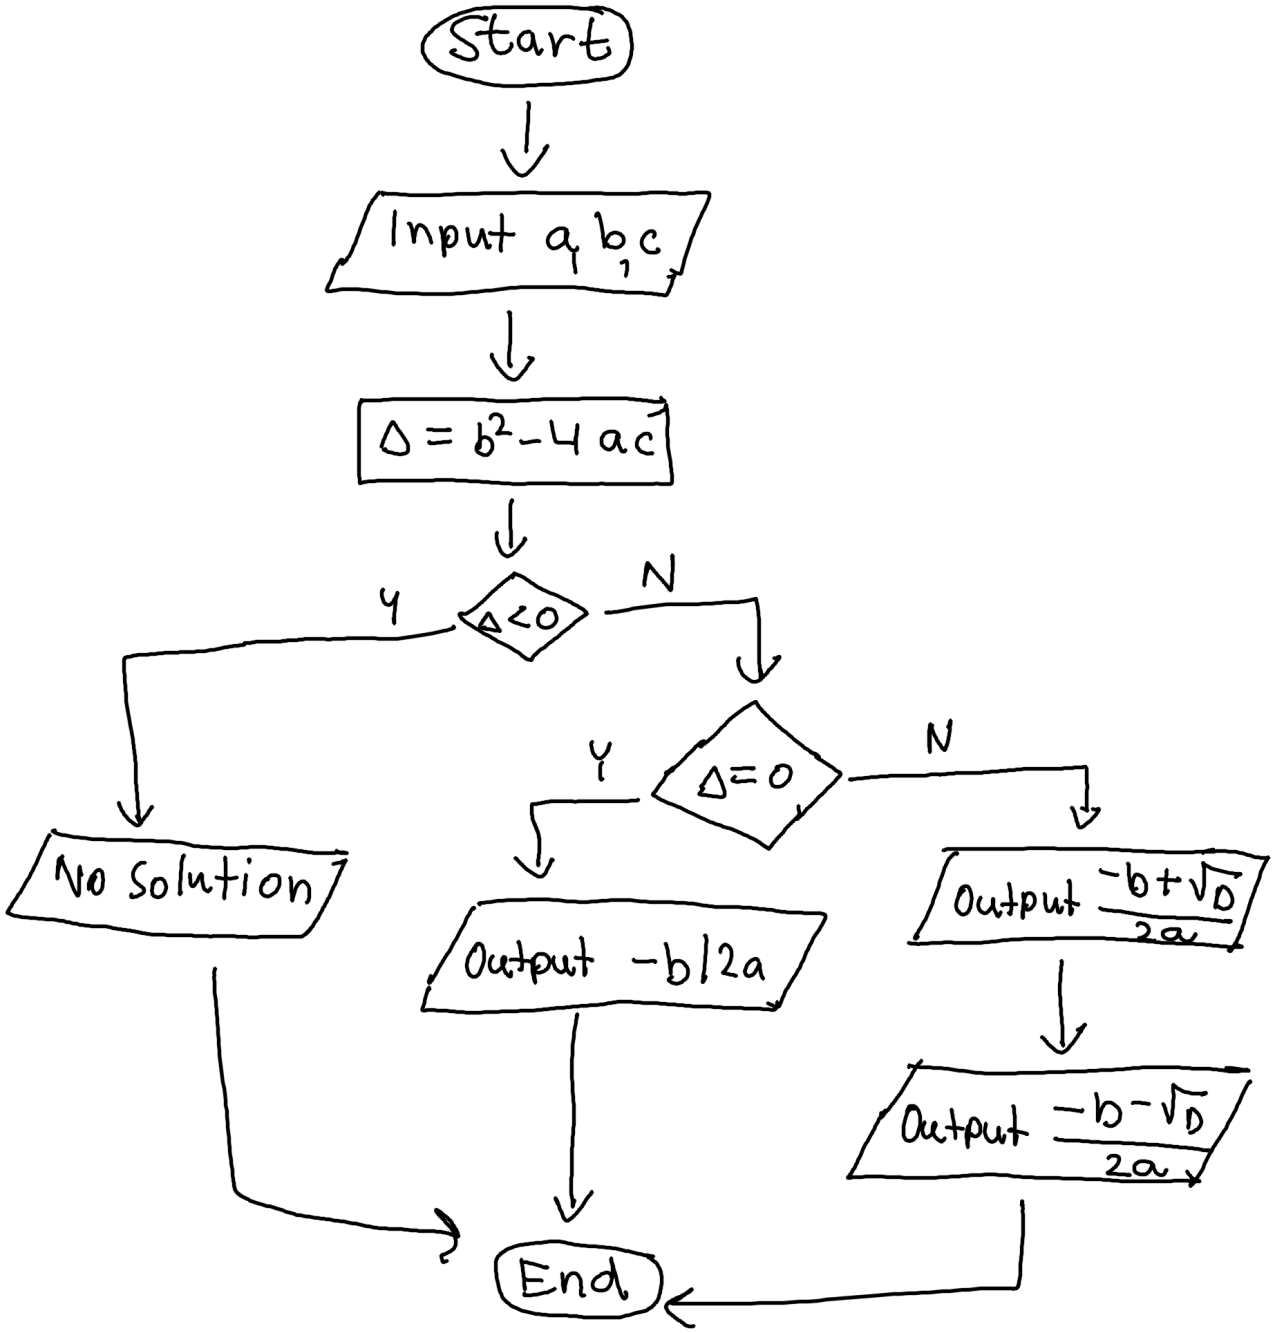 Start
Input a, b, c
Δ = b² - 4 ac
Y
Δ < 0
N
Y
Δ = 0
N
No Solution
Output -b/2a
Output (-b + √D)/2a
Output (-b - √D)/2a
End